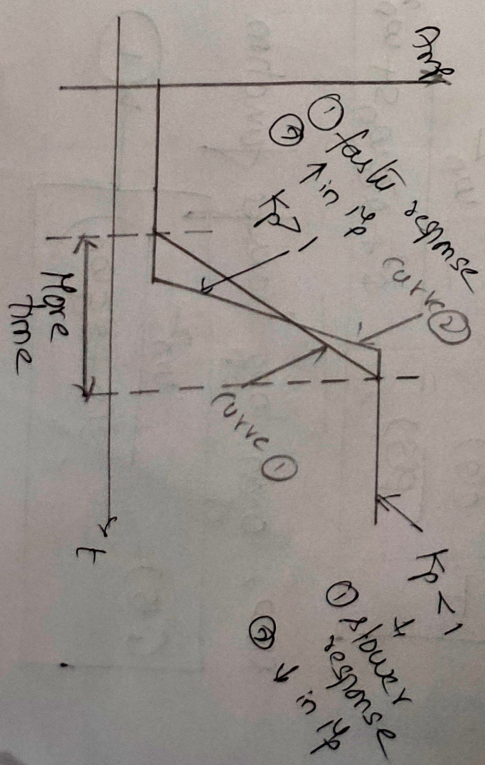 Amp
① faster response
② ↑ in Mp
Kp>1
curve ②
curve ①
More
time
t
Kp<1
① slower
response
② ↓ in Mp